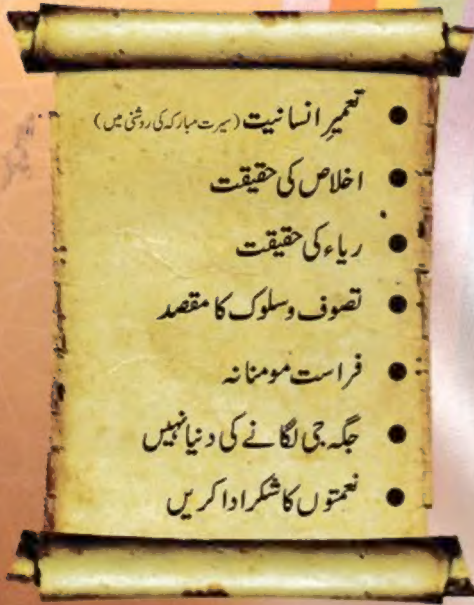 ● تعمیرِ انسانیت (سیرت مبارکہ کی روشنی میں)
● اخلاص کی حقیقت
● ریاء کی حقیقت
● تصوف وسلوک کا مقصد
● فراست مومنانہ
● جگہ جی لگانے کی دنیا نہیں
● نعمتوں کا شکر ادا کریں